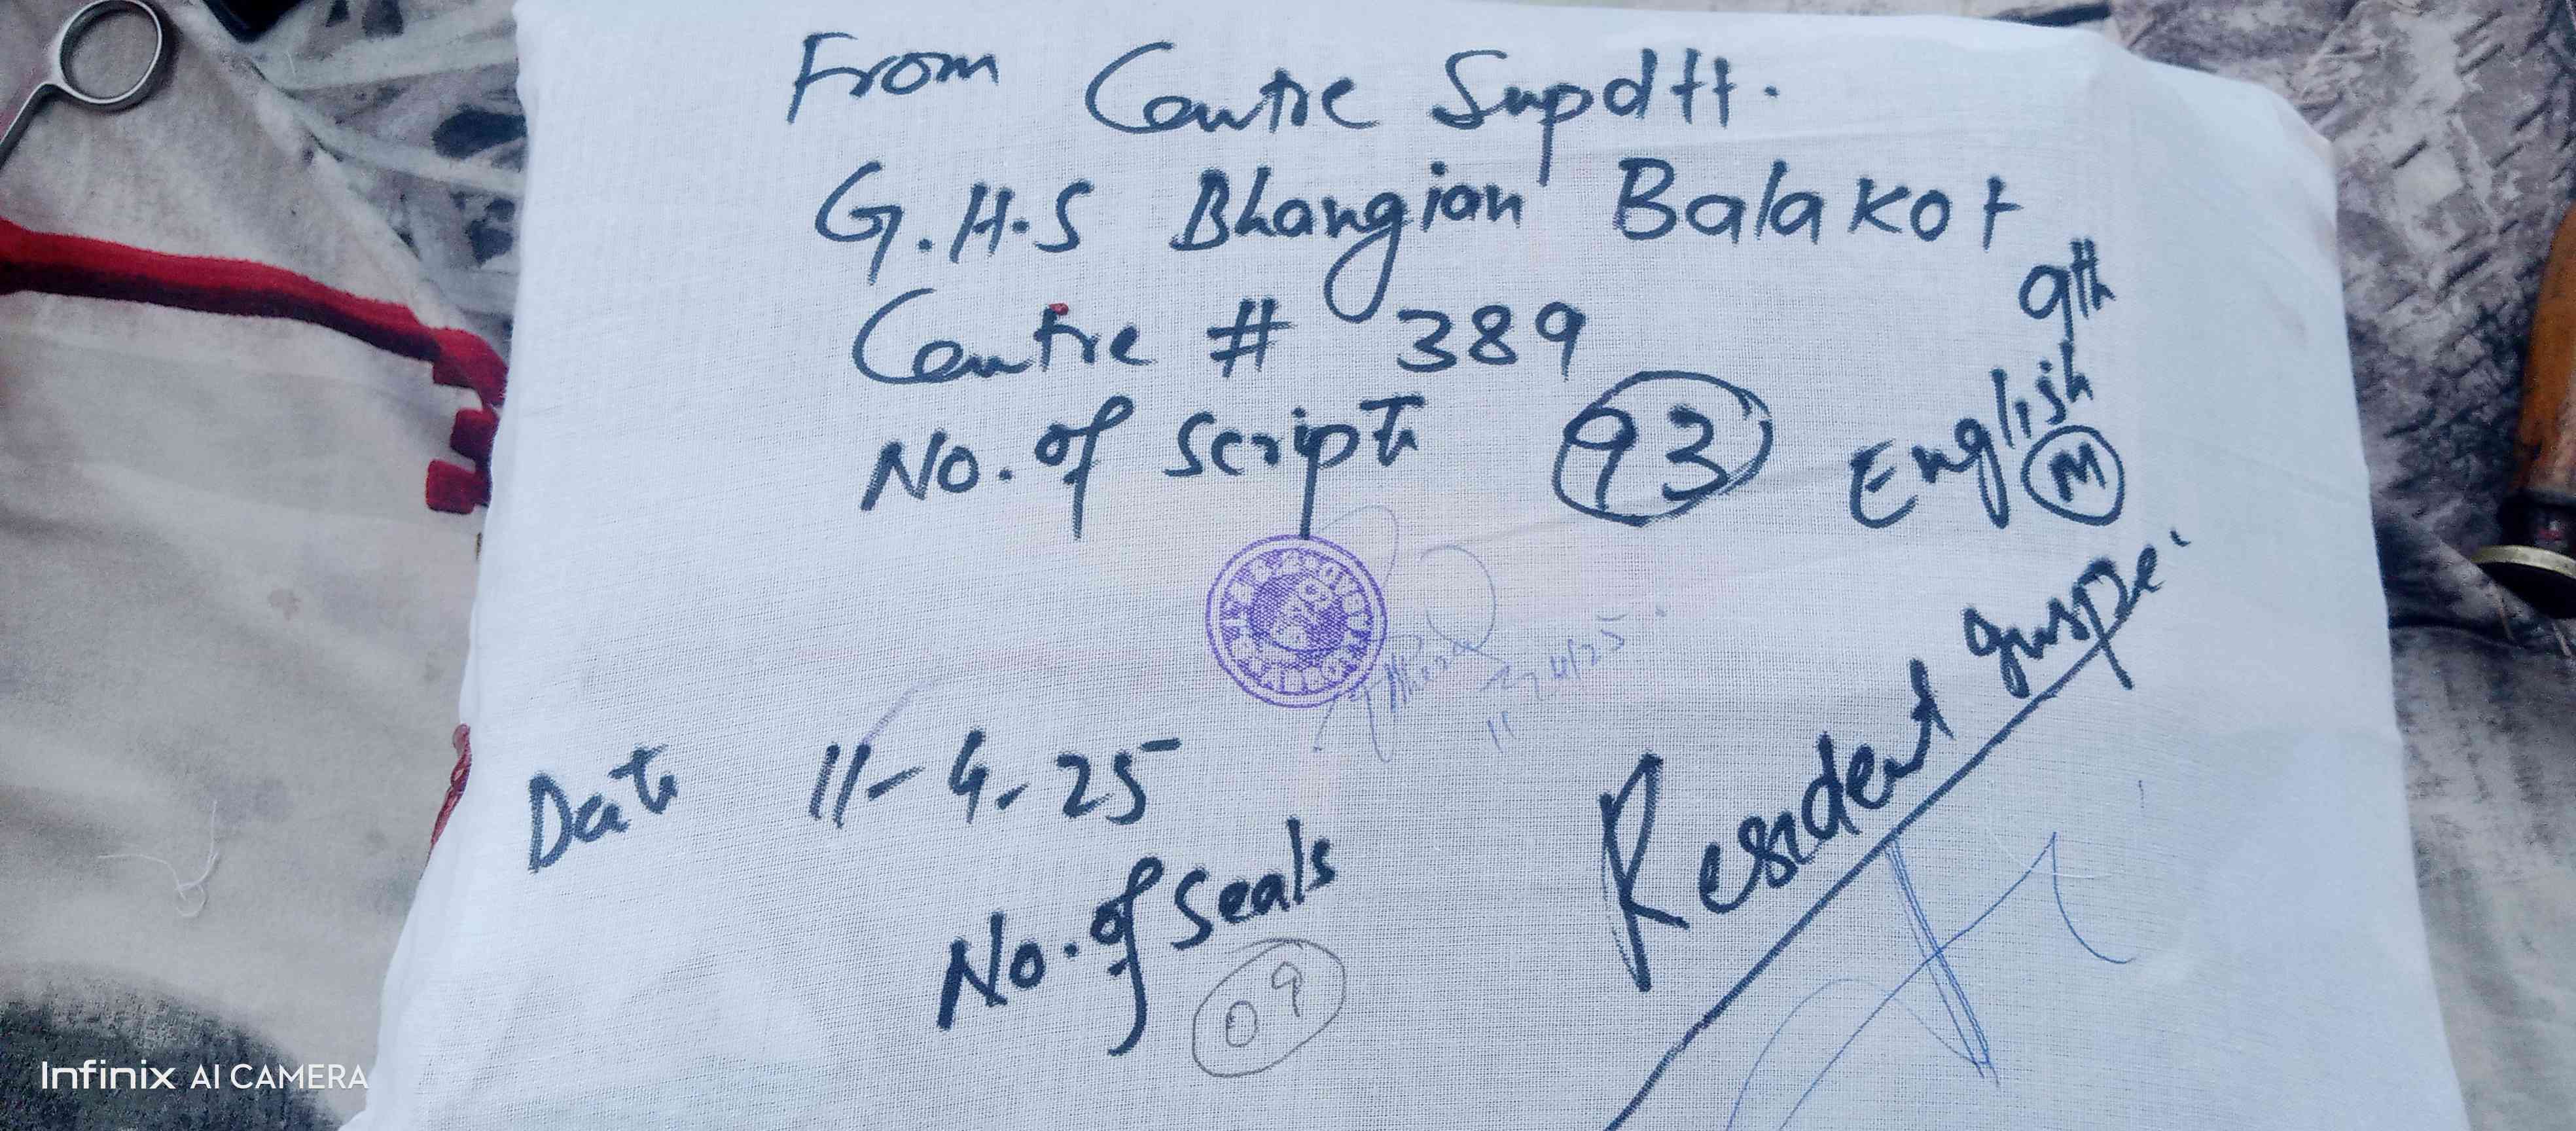 From Centre Supdtt.
G.H.S Bhangian Balakot
Centre # 389
9th
No. of Scripts 93 English
M
11/4/25
Date 11-4-25
No. of Seals
09
Resident Inspe.
Infinix AI CAMERA